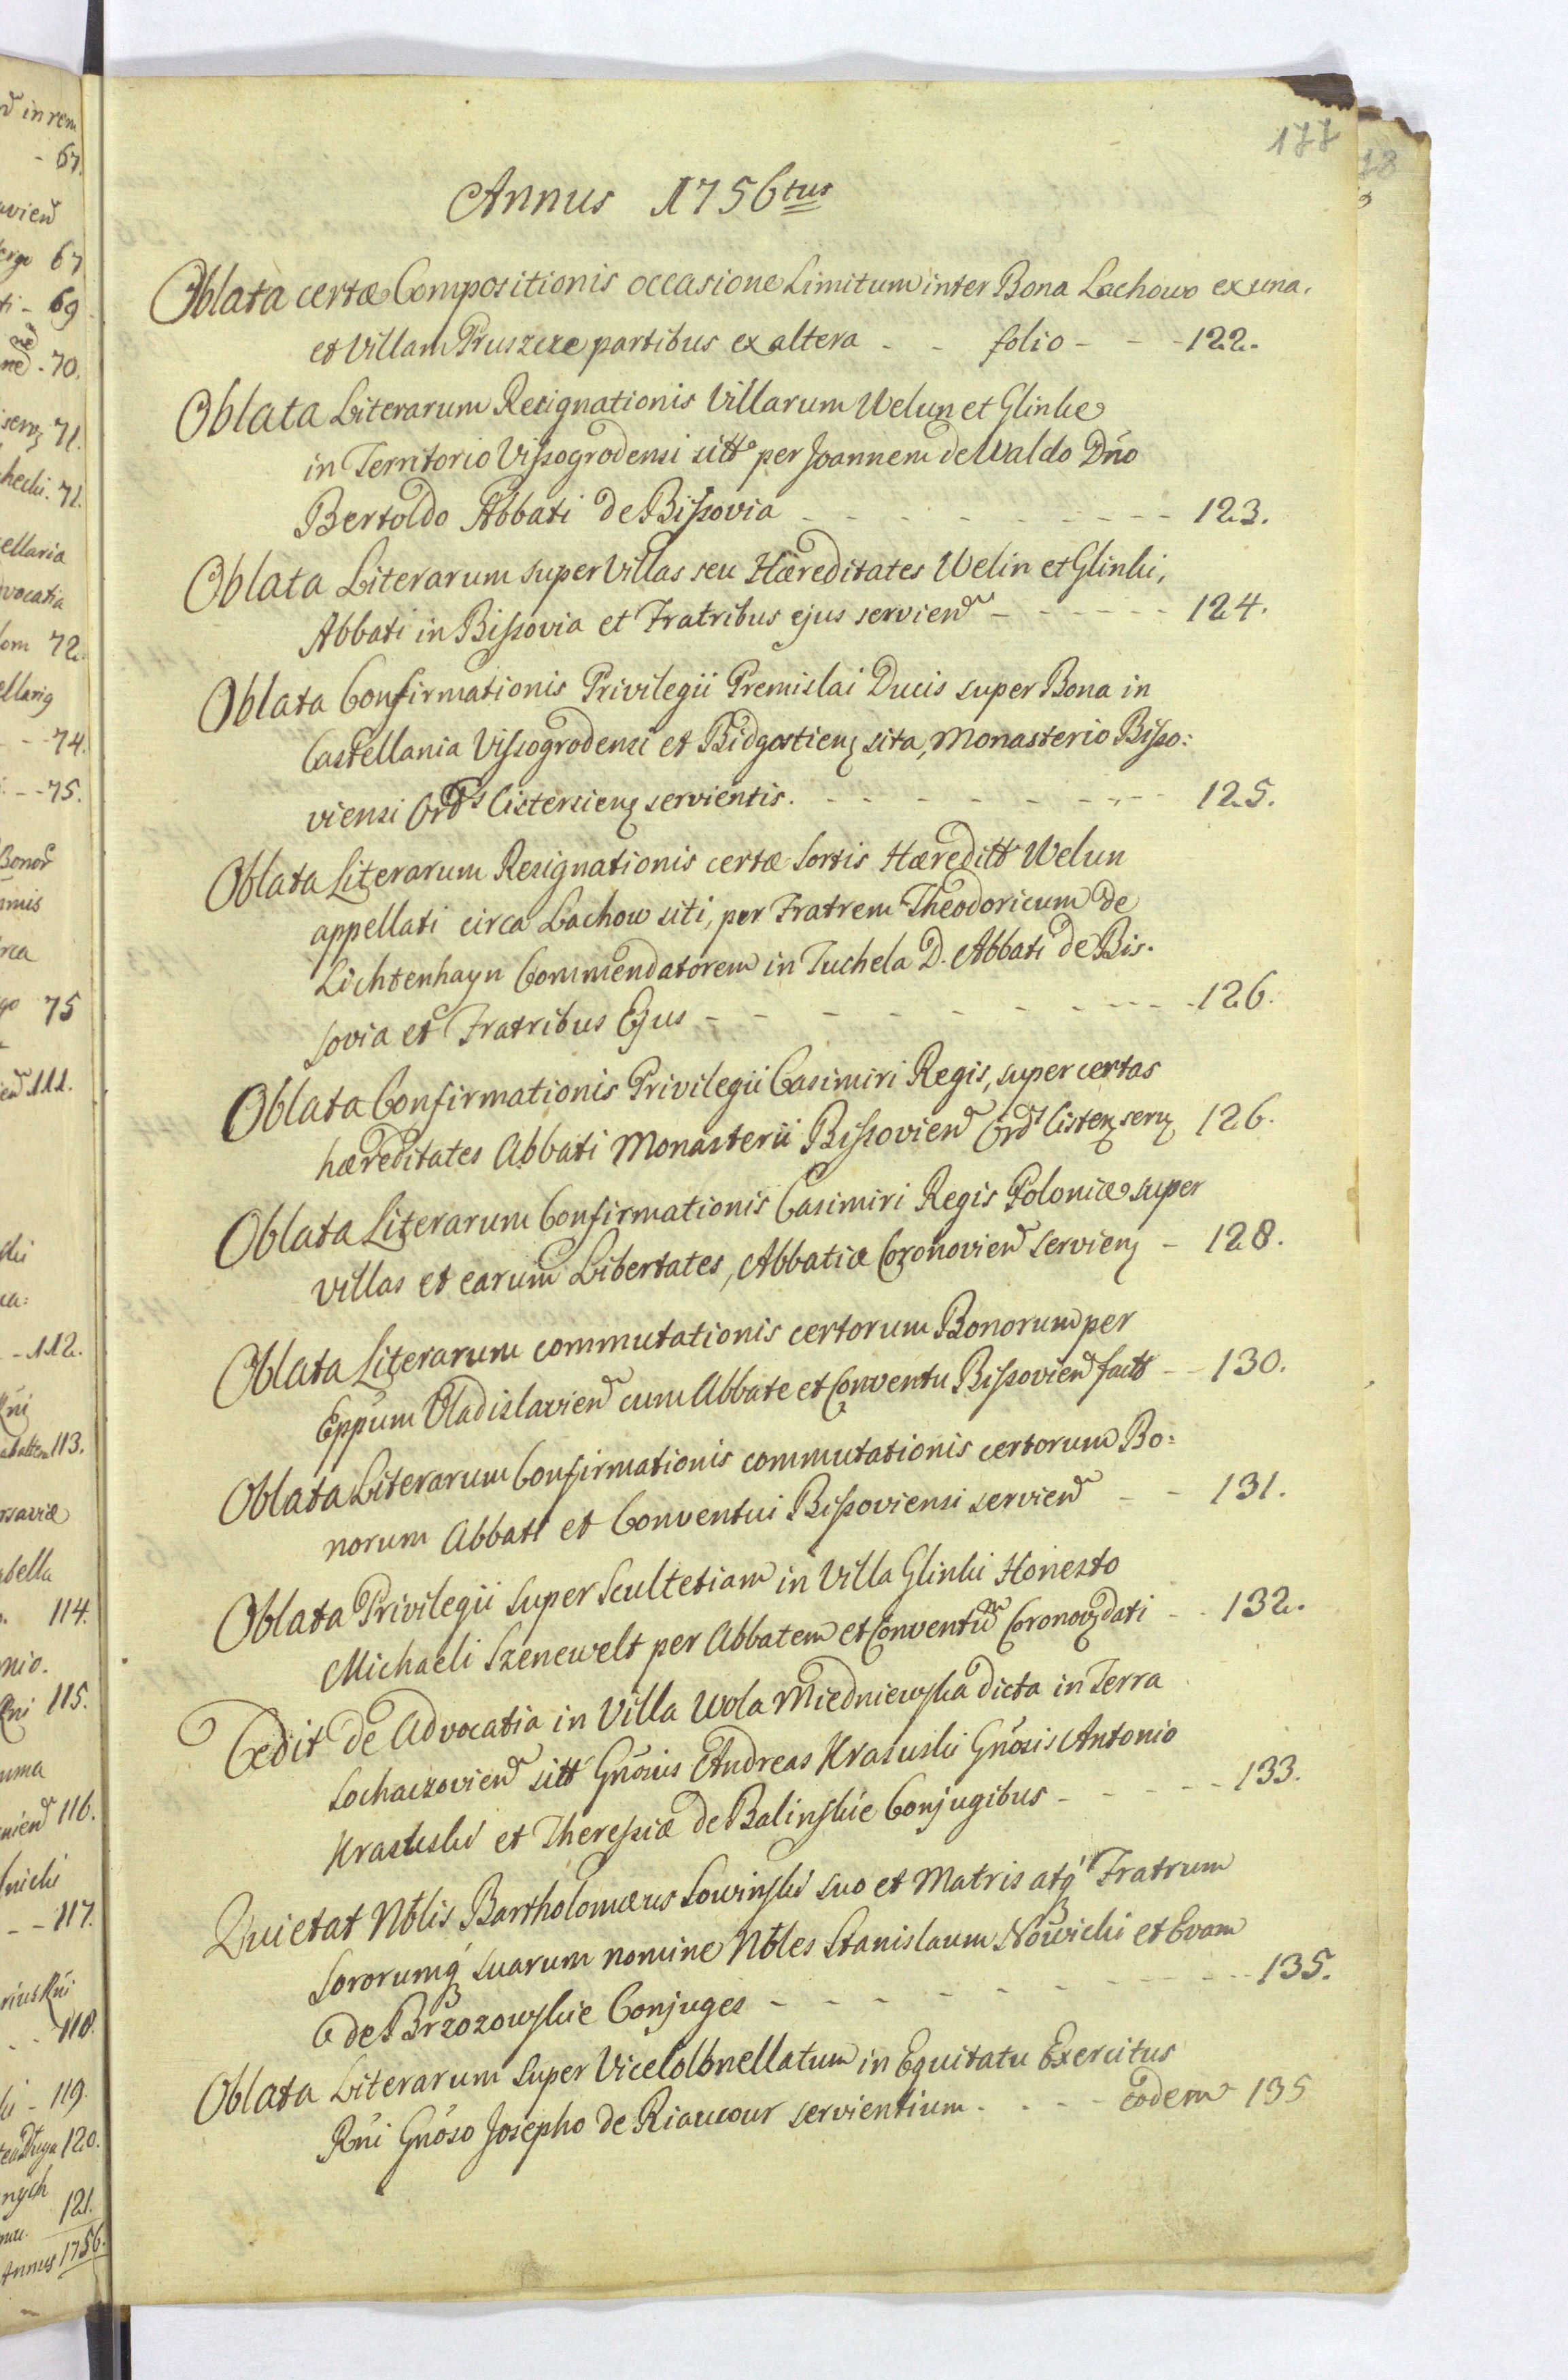 177
Annus 1756tus
Oblata certæ Compositionis occasione Limitum inter Bona Lachowo ex una,
et Villam Pruszcze partibus ex altera - - folio - - - 122.
Oblata Literarum Resignationis Villarum Welun et Glinke
in Territorio Vissogrodensi sitt. per Joannem de Waldo Dño
Bertoldo Abbati de Bissovia - - - - - - - - - 123.
Oblata Literarum super Villas seu Hæreditates Welin et Glinki,
Abbati in Bissovia et Fratribus ejus servien - - - - - - 124.
Oblata Confirmationis Privilegii Premislai Ducis super Bona in
Castellania Vissogrodensi et Bidgostien sita, Monasterio Bisso:
viensi Ordis Cistersien servientis. - - - - - - - - 125.
Oblata Literarum Resignationis certæ Sortis Hæreditt Welun
appellati circa Lachow siti, per Fratrem Theodoricum de
Lichtenhayn Commendatorem in Tuchela D. Abbati de Bis-
sovia et Fratribus Ejus - - - - - - - - - 126.
Oblata Confirmationis Privilegii Casimiri Regis, super certas
hæreditates Abbati Monasterii Bissovien Ordis Cister serv 126.
Oblata Literarum Confirmationis Casimiri Regis Poloniæ super
villas et earum Libertates, Abbatiæ Coronovien servien - 128.
Oblata Literarum commutationis certorum Bonorum per
Eppum Vladislavien cum Abbate et Conventu Bissovien factt - - 130.
Oblata Literarum Confirmationis commutationis certorum Bo:
norum Abbati et Conventui Bissoviensi servien - - 131.
Oblata Privilegii super Scultetiam in Villa Glinki Honesto
Michaeli Szenewelt per Abbatem et Conventum Coronov dati - - 132.
Cedit de Advocatia in Villa Wola Miedniewska dicta in Terra
Sochaczovien sitt Gnosus Andreas Krasuski Gnosis Antonio
Krasuski et Theressiæ de Balinskie Conjugibus - - - - - 133.
Quietat Nblis Bartholomæus Lowinski suo et Matris atq Fratrum
Sororumq suarum nomine Nbles Stanislaum Nowicki et Evam
de Brzozowskie Conjuges - - - - - - - - - 135.
Oblata Literarum super ViceColonellatum in Equitatu Exercitus
Rni Gnoso Josepho de Riaucour servientium. - - - eodem 135